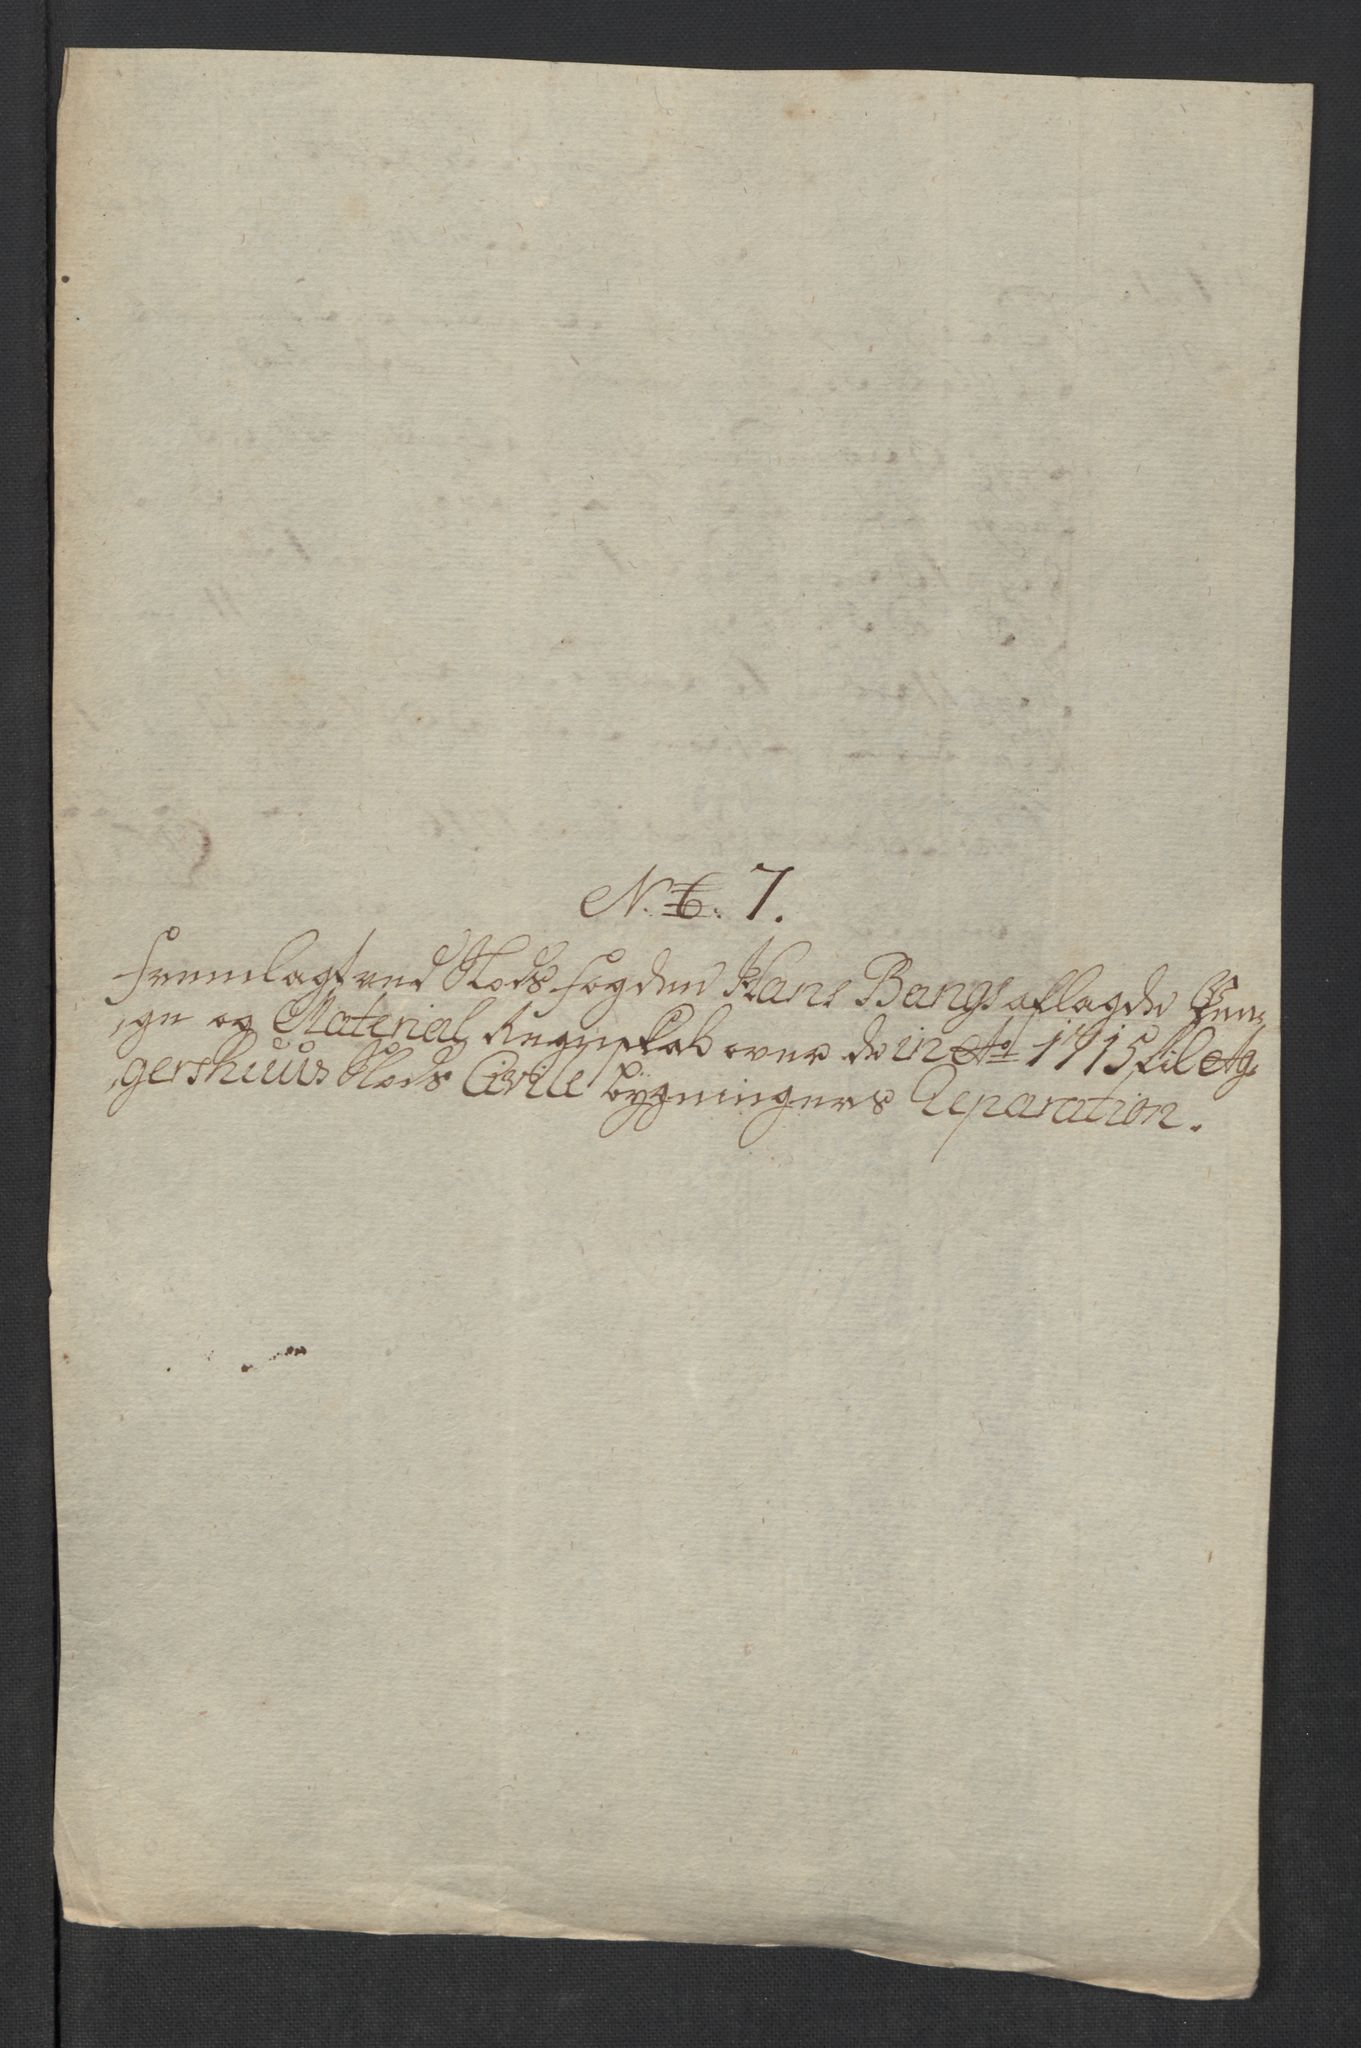 N. 6. 7.
Fremlagt ved Slods fogden Hans Bangs aflagde Pen,
,ge og Material Regnskab over de in Ao 1715 til Ag,
,gershuus Slods Civile bygningers Reparation.